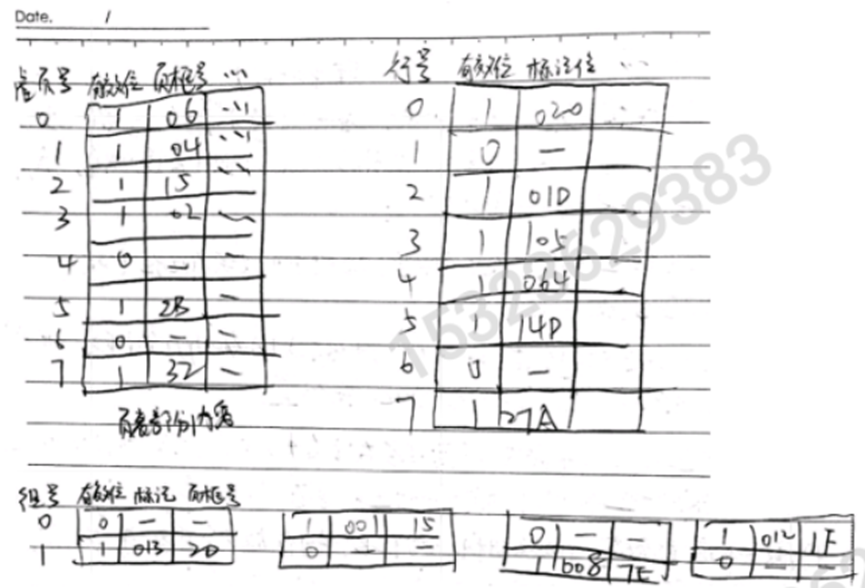 Date. /
虚页号 有效位 页框号 ...
0 1 06 ...
1 1 04 ...
2 1 15 ...
3 1 02 ...
4 0 — —
5 1 2B —
6 0 — —
7 1 32 —
页表部分内容
行号 有效位 标记位 ...
0 1 020 ...
1 0 —
2 1 01D
3 1 105
4 1 064
5 1 14D
6 0 —
7 1 27A
组号 有效位 标记 页框号
0 0 — — 1 00 15 0 — — 1 012 1F
1 1 013 2D 0 — — 1 008 7E 0 — —
15323529383